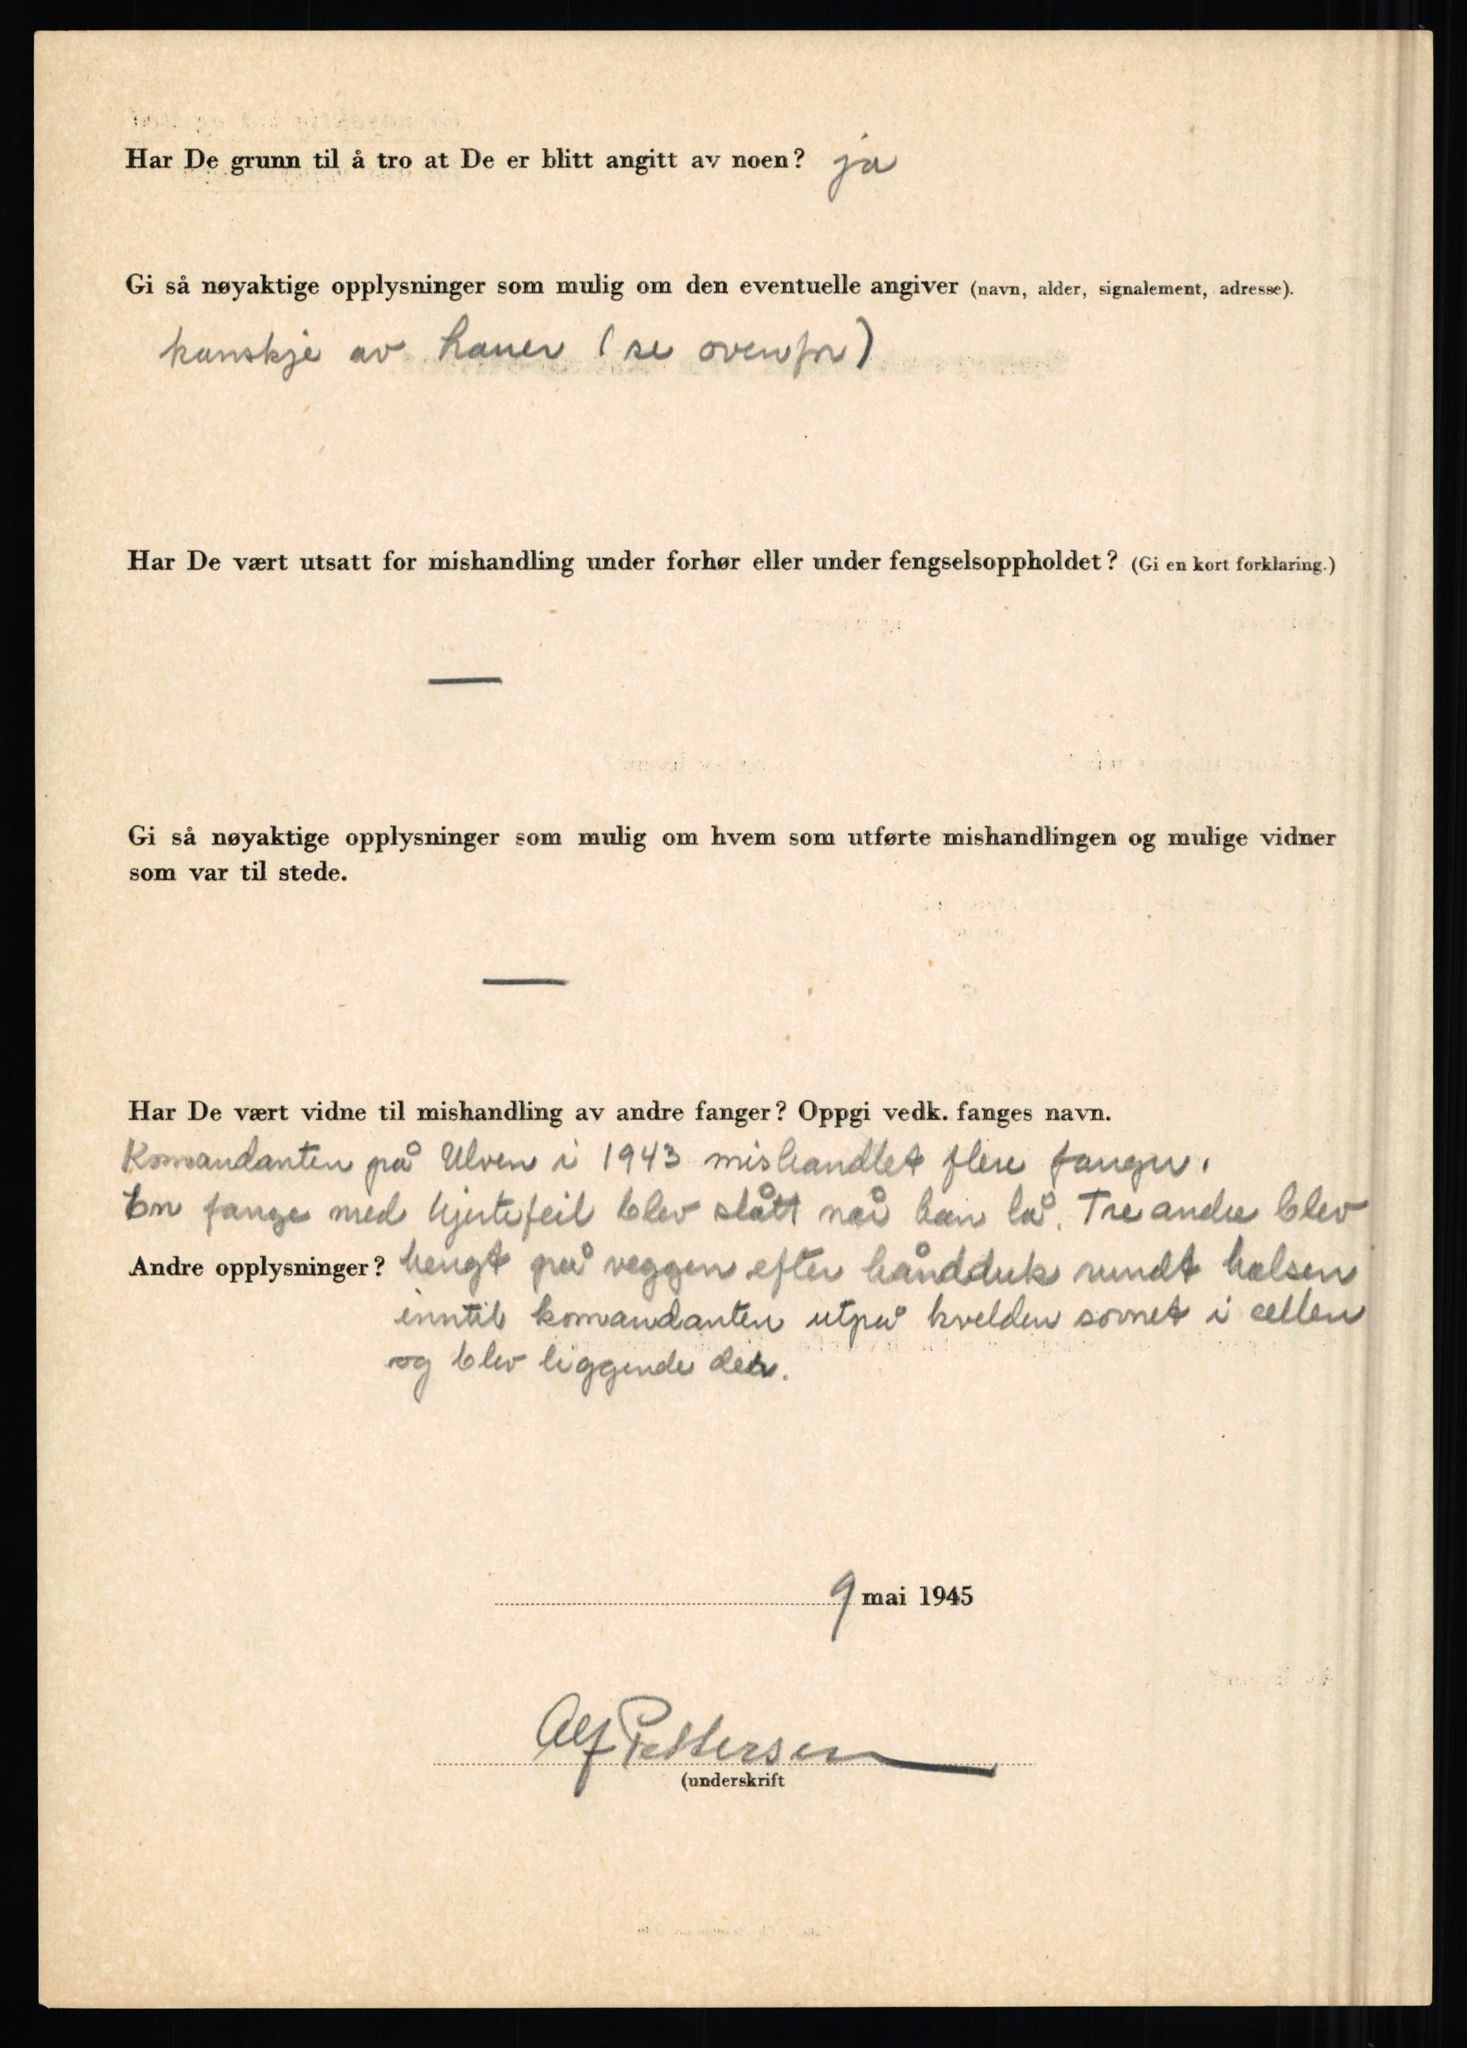 Har De grunn til å tro at De er blitt angitt av noen? ja
Gi så nøyaktige opplysninger som mulig om den eventuelle angiver (navn, alder, signalement, adresse).
kanskje av Lauer (se ovenfor)
Har De vært utsatt for mishandling under forhør eller under fengselsoppholdet? (Gi en kort forklaring.)
—
Gi så nøyaktige opplysninger som mulig om hvem som utførte mishandlingen og mulige vidner
som var til stede.
—
Har De vært vidne til mishandling av andre fanger? Oppgi vedk. fanges navn.
Komandanten på Ulven i 1943 mishandlet flere fanger.
En fange med hjertefeil blev slått når han lå. Tre andre blev
Andre opplysninger? hengt på veggen efter håndduk rundt halsen
inntil komandanten utpå kvelden sovnet i cellen
og blev liggende der.
9 mai 1945
Alf Pettersen
(underskrift